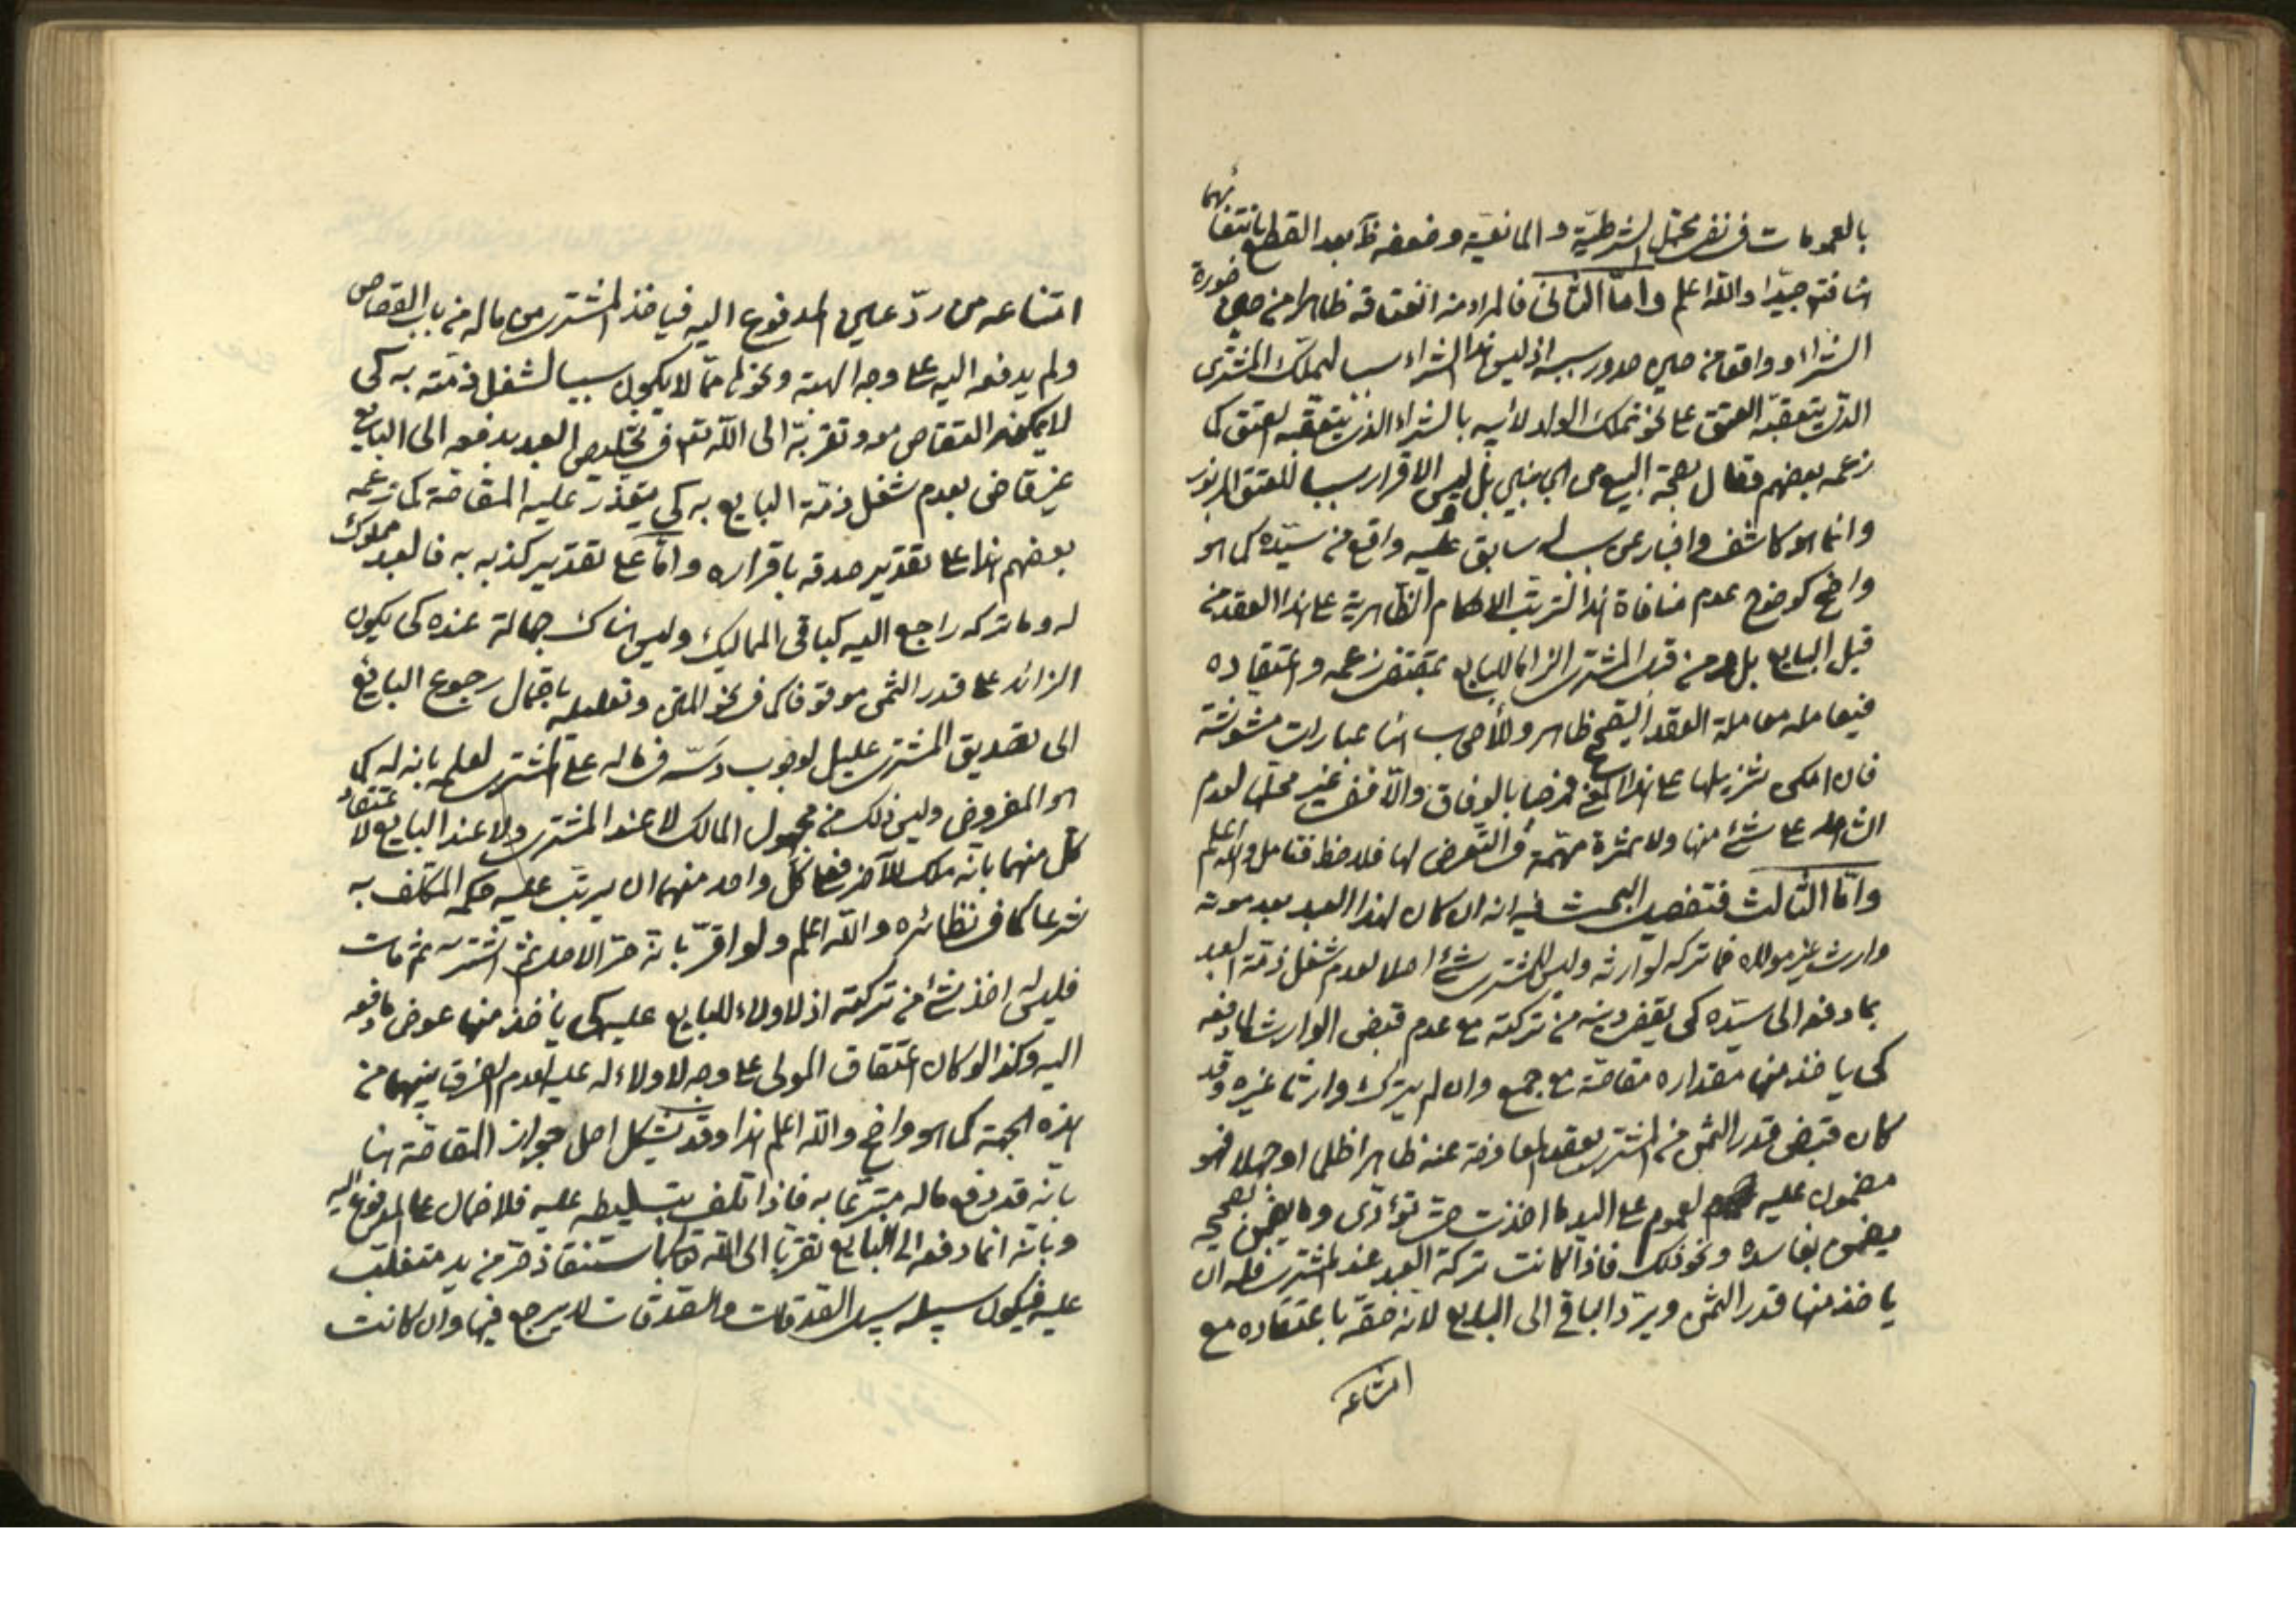 بالعمومات في نفي محتمل الشرطيّة والمانعيّة وضعفه ظ بعد القطع بانتفائهما
هنا فتدبر جيّدا والله اعلم وامّا الثاني فالمراد من انعتاقه ظاهرا من حين صورة
الشراء وواقعا من حين صدور سببه اذ ليس هذا الشراء سببا لتملك المشتري
الذي يتعقبه العتق على نحو تملك الولد لأبيه بالشراء الذي يتعقبه العتق كما
زعمه بعضهم فقال بصحة البيع من الجانبين بل ليس الاقرار سببا للعتق المزبور
وانما هو كاشف واخبار عن سبب له سابق عليه واقع من سيّده كما هو
واضح كوضوح عدم منافاة هذا لترتب الاحكام الظاهرية على هذا العقد من
قبل البايع بل ومن قبل المشتري الزاما للبايع بمقتضى زعمه واعتقاده
فيعامله معاملة العقد الصحيح ظاهر وللأصحاب هنا عبارات مشوشة
فان امكن تنزيلها على هذا المعنى فمرحبا بالوفاق والّا ففي غير محلها لعدم
الشاهد على شئ منها ولا ثمرة مهمّة في التعرض لها فلاحظ وتأمل والله اعلم
وامّا الثالث فتفصيل البحث فيه انه ان كان لهذا العبد بعد موته
وارث غير مولاه فما تركه لوارثه وليس للمشتري شئ اصلا لعدم شغل ذمّة العبد
بما دفعه الى سيّده كى يقضى دينه من تركته مع عدم قبض الوارث لما دفعه
كى ياخذ منها مقداره مقاصّة مع جمع وان لم يترك وارثا غيره وقد
كان قبض قدر الثمن من المشتري بعقد المعاوضة عنه ظاهرا ظلما او جهلا فهو
مضمون عليه لعموم على اليد ما اخذت حتى تؤدّى وما يضمن بصحيحه
يضمن بفاسده ونحو ذلك فاذا كانت تركة العبد عند المشتري فله ان
ياخذ منها قدر الثمن ويردّ الباقي الى البايع لانه حقّه باعتقاده مع
امتناعه
امتناعه من ردّ عين المدفوع اليه فياخذ المشتري من ماله من باب القصاص
ولم يدفعه اليه على وجه الهبة ونحوها ممّا لا يكون سببا لشغل ذمّته به كى
لا يمكنه القصاص معه وتقربه الى الله تعم في تخليص العبد بدفعه الى البايع
غير قاض بعدم شغل ذمّة البايع به كي يتعذّر عليه المقاصّة كما زعمه
بعضهم هذا على تقدير صدقه باقراره وامّا على تقدير كذبه به فالعبد مملوك
له وما تركه راجع اليه كباقى المماليك وليس هناك جهالة عنده كى يكون
الزائد على قدر الثمن موقوفا كما في نحو المتن وتعليله باحتمال رجوع البايع
الى تصديق المشتري عليل لوجوب دسّه في ماله على المشتري لعلمه بانه له كما
هو المفروض وليس ذلك من مجهول المالك لا عند المشتري ولا عند البايع لاعتقاد
كل منهما بانّه ملك للآخر فعلى كل واحد منهما ان يرتب عليه حكمه المكلف به
شرعا كما في نظائره والله اعلم ولو اقرّ بانّه حرّ الاصل ثم اشتراه ثم مات
فليس له اخذ شئ من تركته اذ لا ولاء للبايع عليه كى ياخذ منها عوض ما دفعه
اليه وكذا لو كان اعتقاق المولى على وجه لا ولاء له عليه لعدم الفرق بينهما من
هذه الجهة كما هو واضح والله اعلم هذا وقد يشكل اصل جواز المقاصّة هنا
بانّه قد دفع ماله متبرّعا به فاذا تلف بتسليطه عليه فلا ضمان على المدفوع اليه
وبانّه انما دفعه الى البايع تقربا الى الله تعالى باستنقاذ حرّ من يد متغلب
عليه فيكون سبيله سبيل الصدقات والصدقات لا يرجع فيها وان كانت